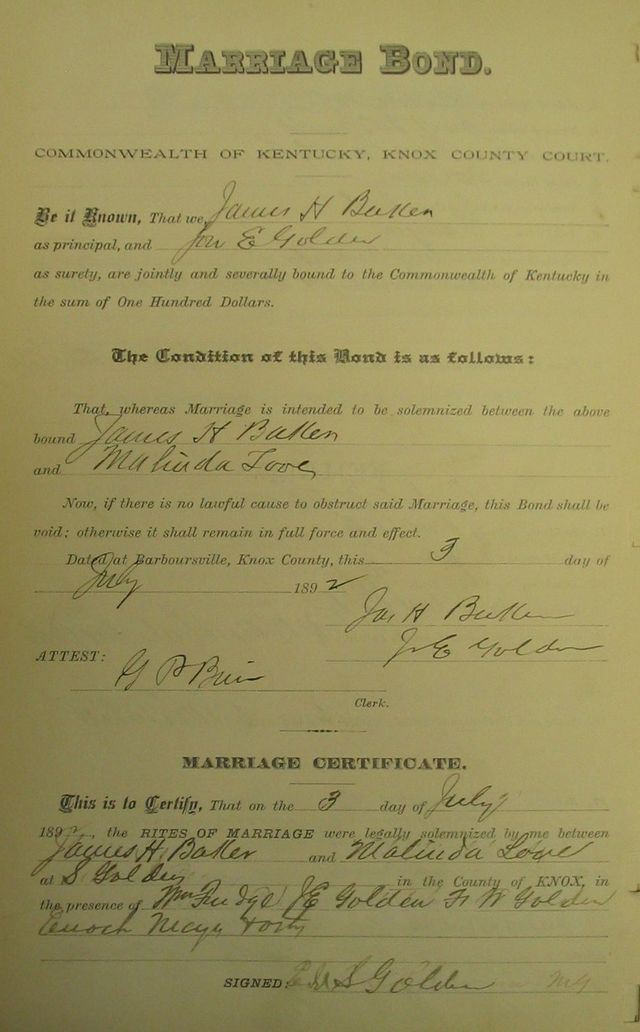 MARRIAGE BOND.
COMMONWEALTH OF KENTUCKY, KNOX COUNTY COURT.
Be it Known, That we, James H Baker
as principal, and E Golden
as surety, are jointly and severally bound to the Commonwealth of Kentucky in
the sum of One Hundred Dollars.
The Condition of this Bond is as follows:
That, whereas Marriage is intended to be solemnized between the above
bound James H Baker
and Malinda Love
Now, if there is no lawful cause to obstruct said Marriage, this Bond shall be
void; otherwise it shall remain in full force and effect.
Dated at Barboursville, Knox County, this 3 day of
July 1892
Jas H Baker
J E Golden
ATTEST:
G P
Clerk.
MARRIAGE CERTIFICATE.
This is to Certify, That on the 3 day of July
1892, the RITES OF MARRIAGE were legally solemnized by me between
James H Baker and Malinda Love
at S Golden in the County of KNOX, in
the presence of Wm J E Golden W Golden
Enoch
SIGNED: S Golden